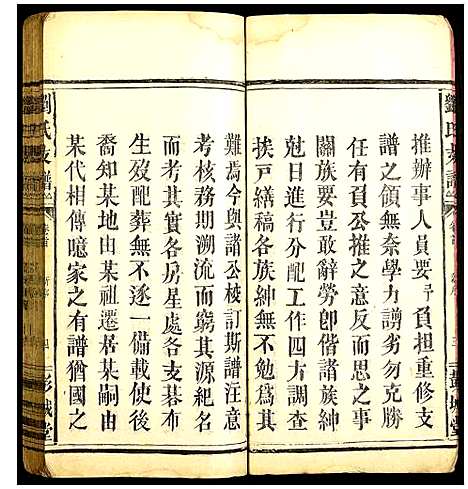 劉氏支譜
卷首
三
彭城堂
推辦事人員要予負担重修支
譜之領無奈學力譾劣勿克勝
任有負公推之意反而思之事
關族要豈敢辭勞卽偕諸族紳
尅日進行分配工作四方調查
挨戶繕稿各族紳無不勉爲其
難焉今與諸公校訂斯譜注意
考核務期溯流而窮其源紀名
而考其諸各房星處各支碁布
生歿配葬無不逐一備載使後
裔知某地由某祖遷居某嗣由
某代相傳噫家之有譜猶國之
劉氏支譜
卷首
新序
四
彭城堂